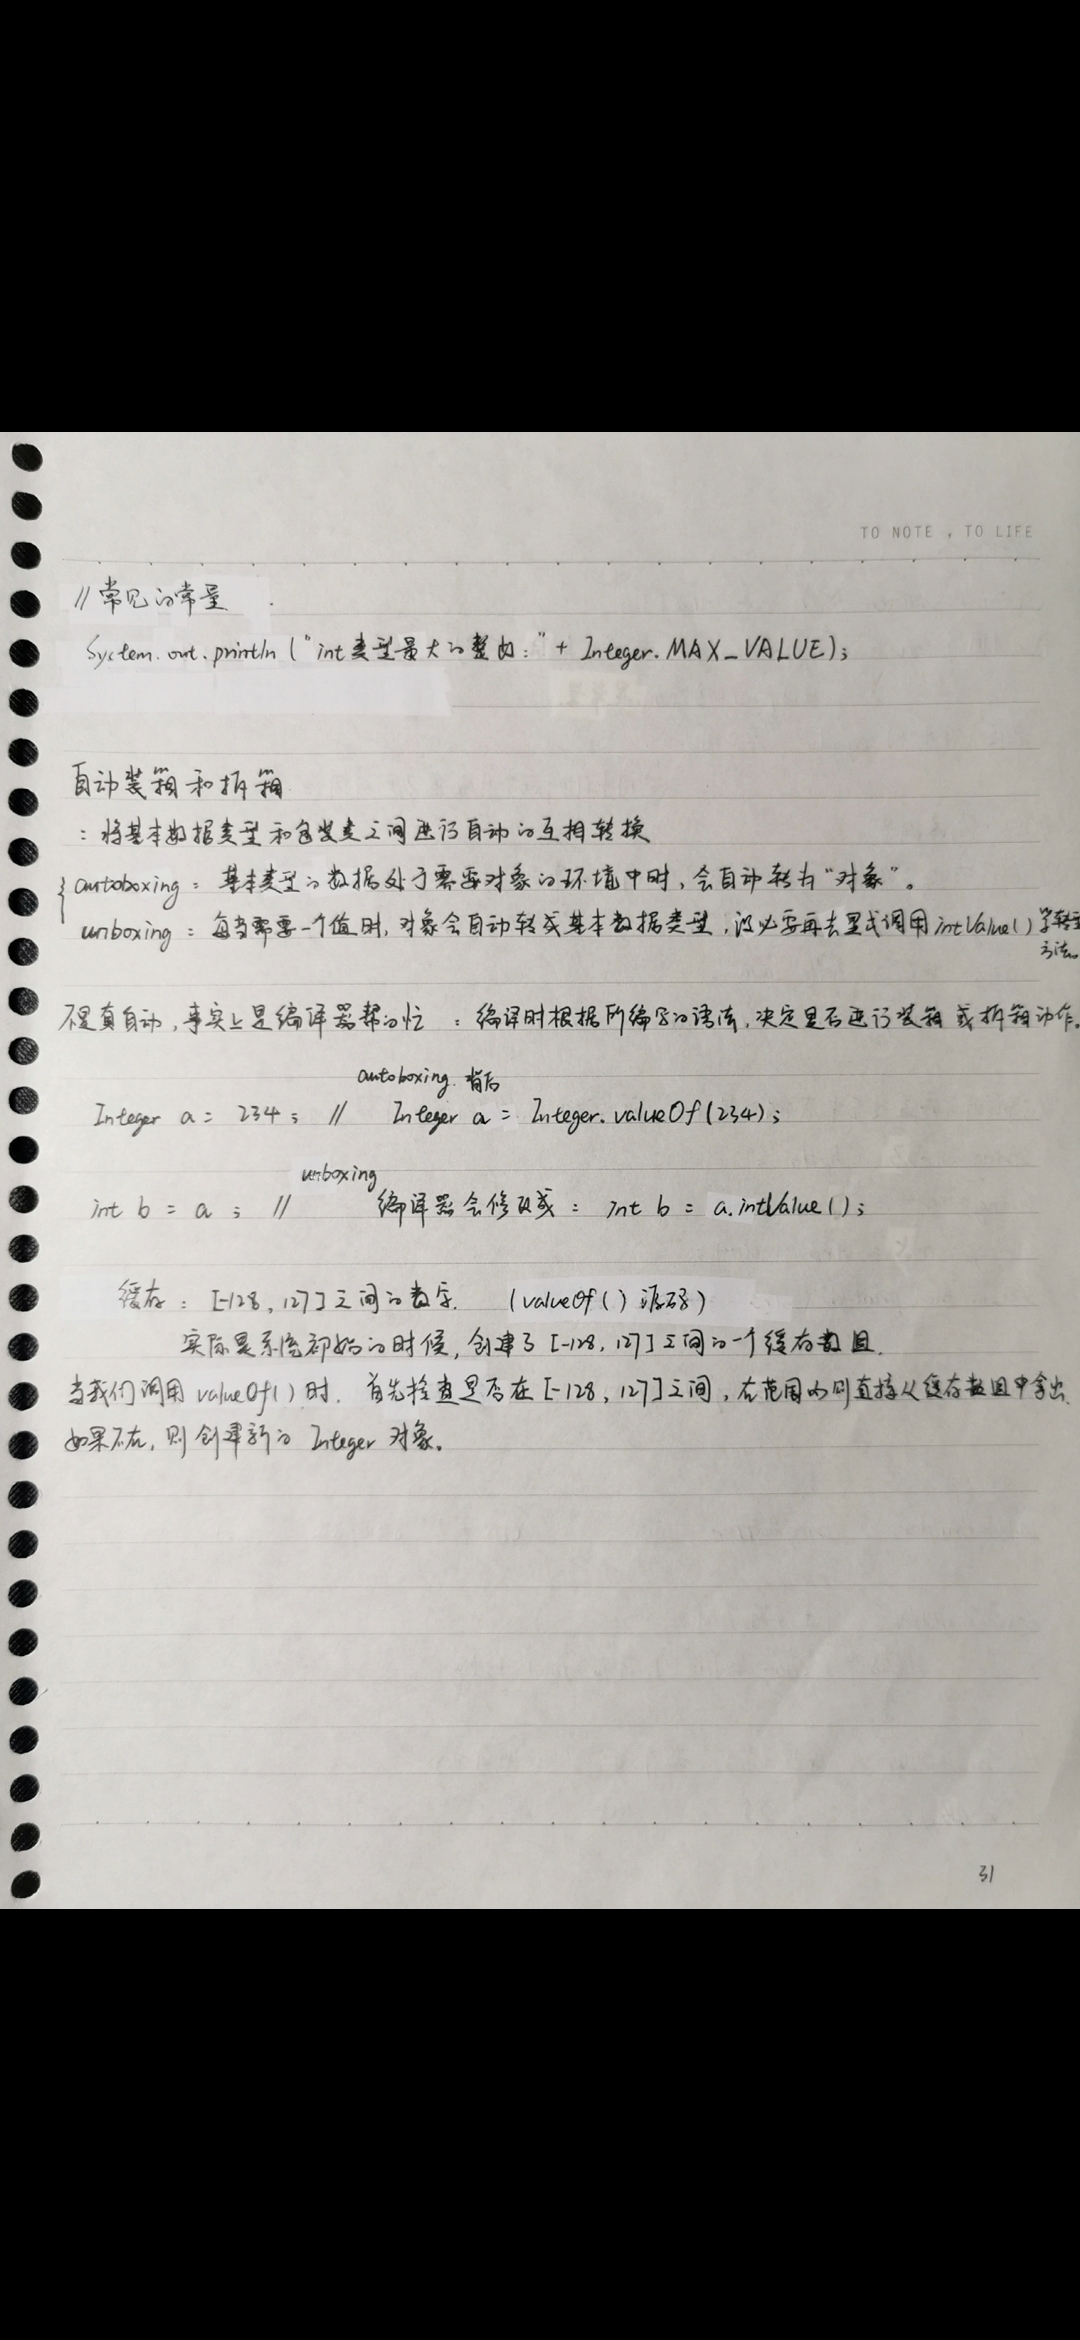 TO NOTE , TO LIFE
// 常见的常量
System.out.println ("int类型最大的整数:" + Integer.MAX_VALUE);
自动装箱和拆箱
: 将基本数据类型和包装类之间进行自动的互相转换
autoboxing: 基本类型的数据处于需要对象的环境中时,会自动转为“对象”。
unboxing: 每当需要一个值时,对象会自动转成基本数据类型,没必要再去显式调用intValue()等转型
方法。
不是真自动,事实上是编译器帮的忙 : 编译时根据所编写的语法,决定是否进行装箱或拆箱动作。
autoboxing. 背后
Integer a = 234; // Integer a = Integer.valueOf(234);
unboxing
int b = a ; // 编译器会修改成: int b = a.intValue();
缓存: [-128, 127]之间的数字. (valueOf() 源码)
实际是系统初始的时候,创建了[-128, 127]之间的一个缓存数组.
当我们调用 valueOf()时. 首先检查是否在[-128, 127]之间,在范围内则直接从缓存数组中拿出.
如果不在,则创建新的 Integer 对象。
31